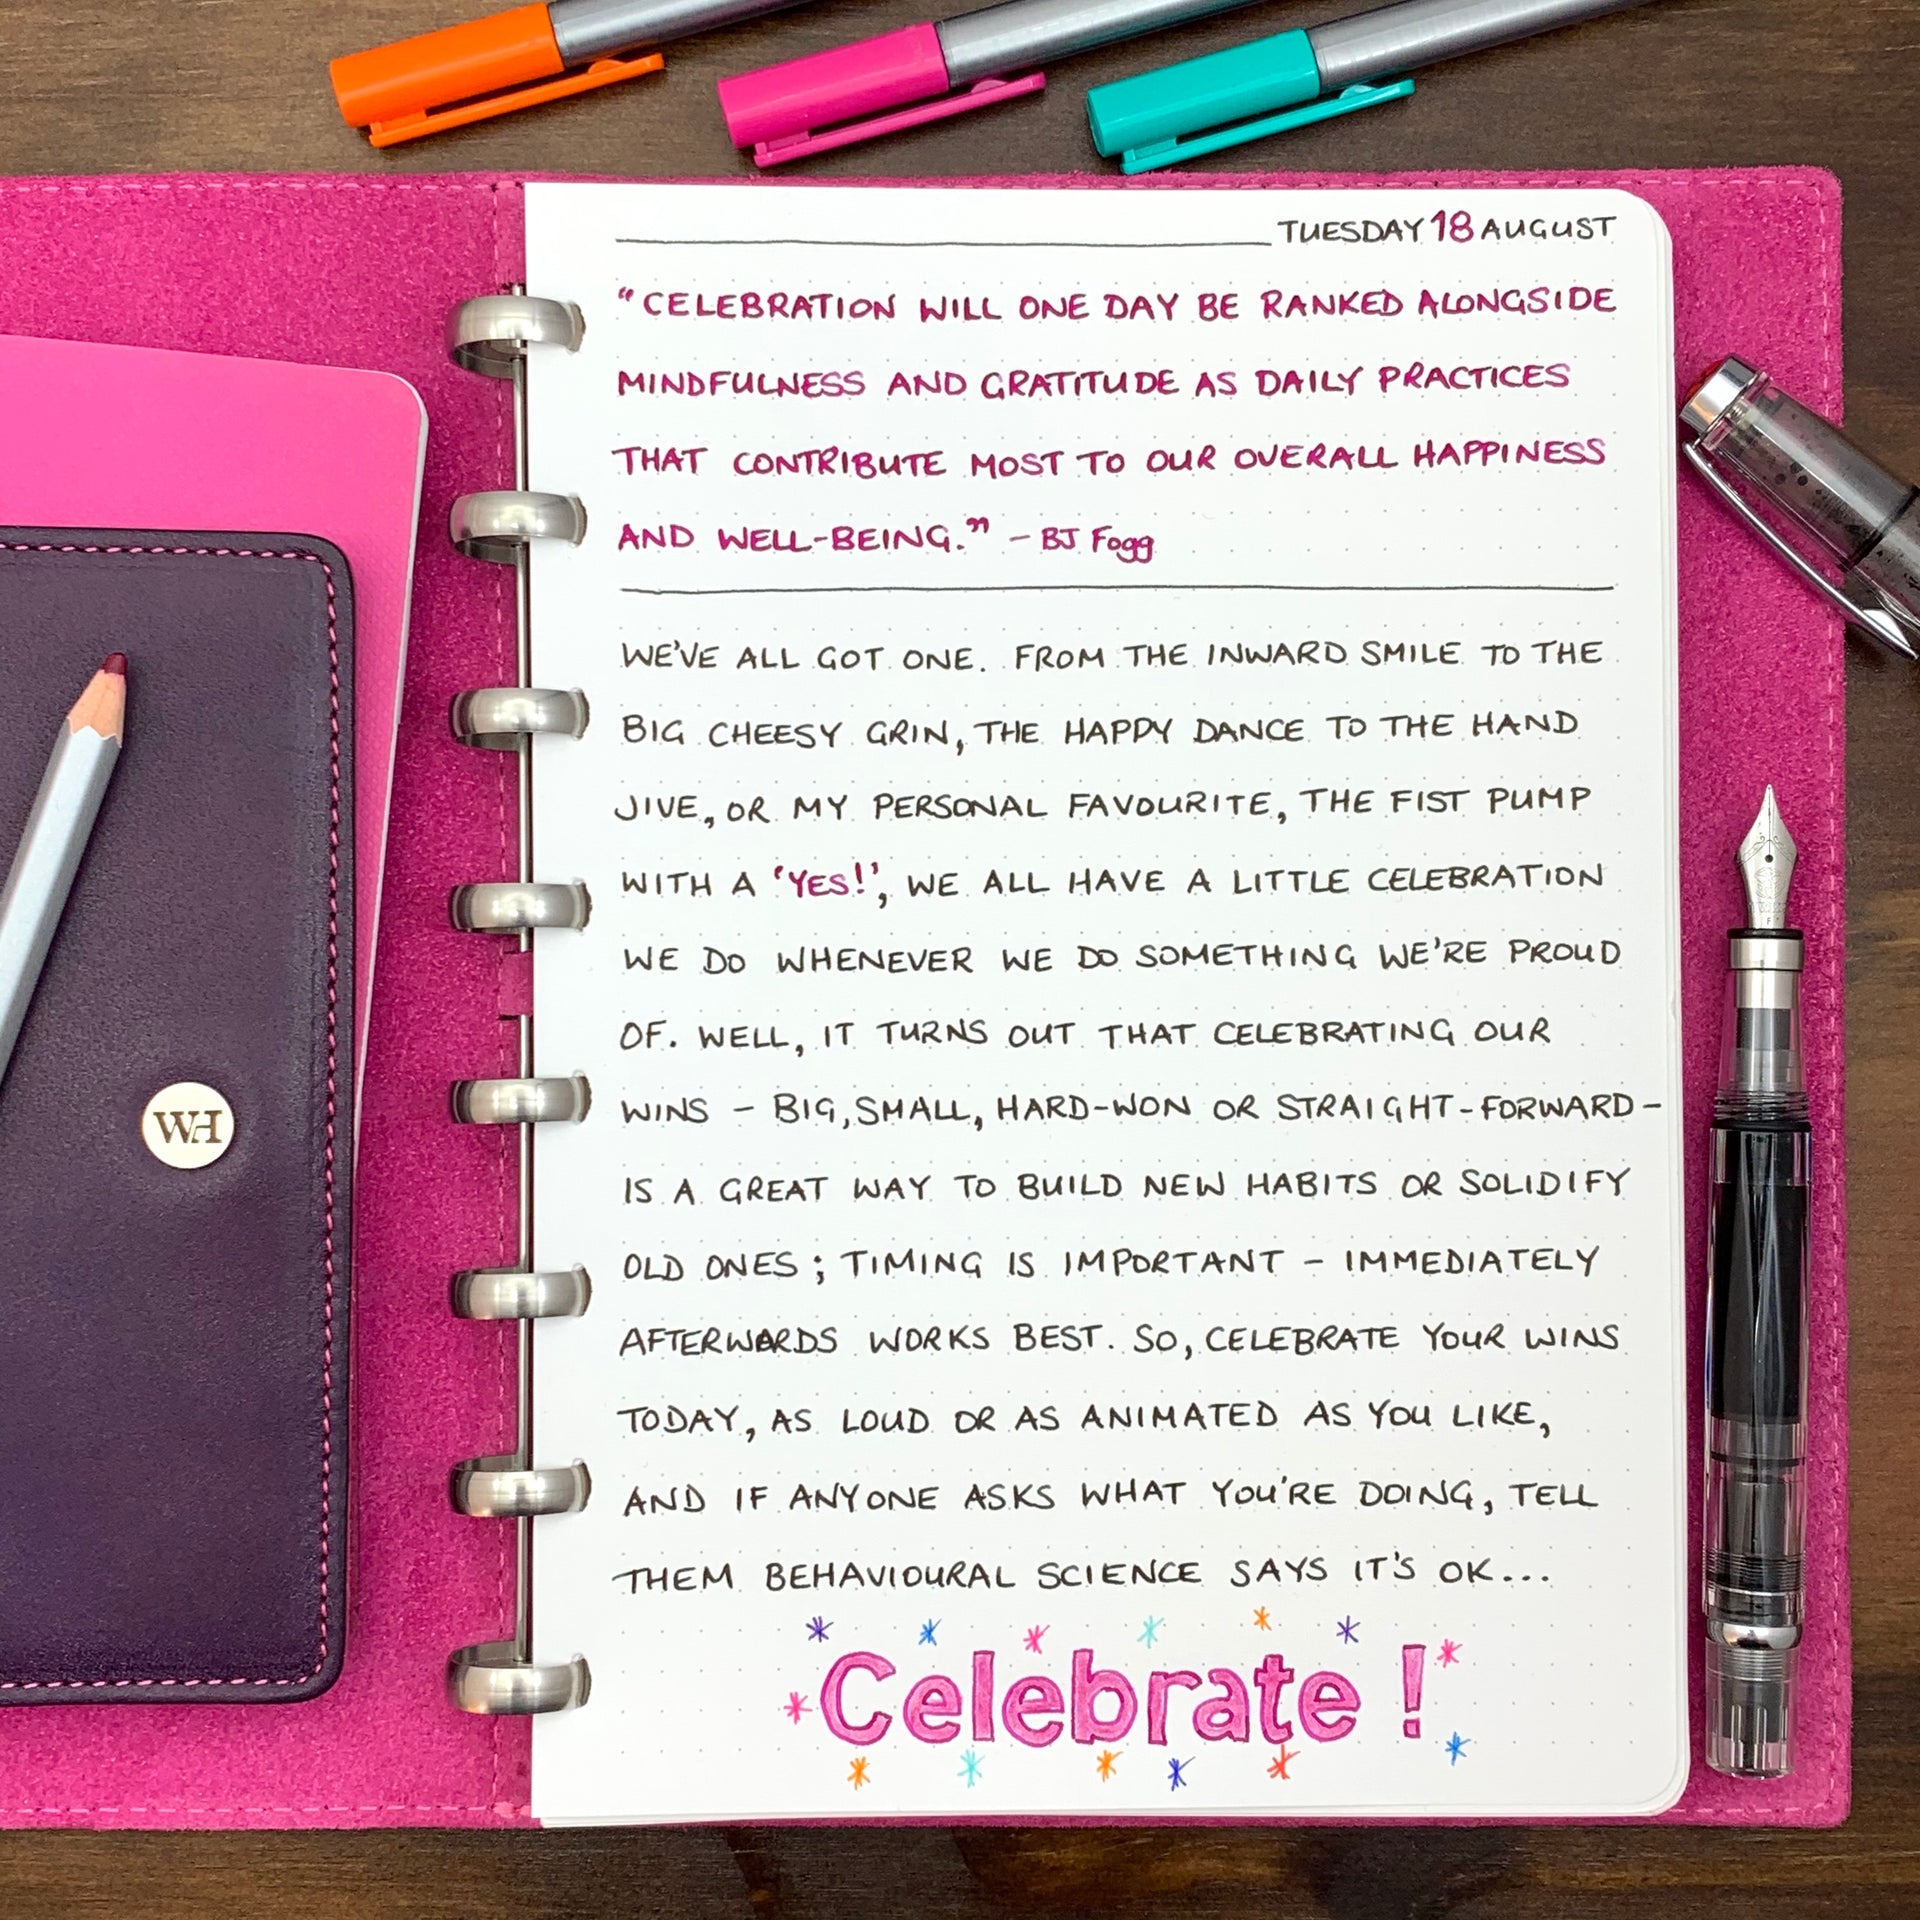 TUESDAY 18 AUGUST
"CELEBRATION WILL ONE DAY BE RANKED ALONGSIDE
MINDFULNESS AND GRATITUDE AS DAILY PRACTICES
THAT CONTRIBUTE MOST TO OUR OVERALL HAPPINESS
AND WELL-BEING." - BJ Fogg
WE'VE ALL GOT ONE. FROM THE INWARD SMILE TO THE
BIG CHEESY GRIN, THE HAPPY DANCE TO THE HAND
JIVE, OR MY PERSONAL FAVOURITE, THE FIST PUMP
WITH A 'YES!', WE ALL HAVE A LITTLE CELEBRATION
WE DO WHENEVER WE DO SOMETHING WE'RE PROUD
OF. WELL, IT TURNS OUT THAT CELEBRATING OUR
WINS - BIG, SMALL, HARD-WON OR STRAIGHT-FORWARD -
IS A GREAT WAY TO BUILD NEW HABITS OR SOLIDIFY
OLD ONES; TIMING IS IMPORTANT - IMMEDIATELY
AFTERWARDS WORKS BEST. SO, CELEBRATE YOUR WINS
TODAY, AS LOUD OR AS ANIMATED AS YOU LIKE,
AND IF ANYONE ASKS WHAT YOU'RE DOING, TELL
THEM BEHAVIOURAL SCIENCE SAYS IT'S OK...
Celebrate!
WH